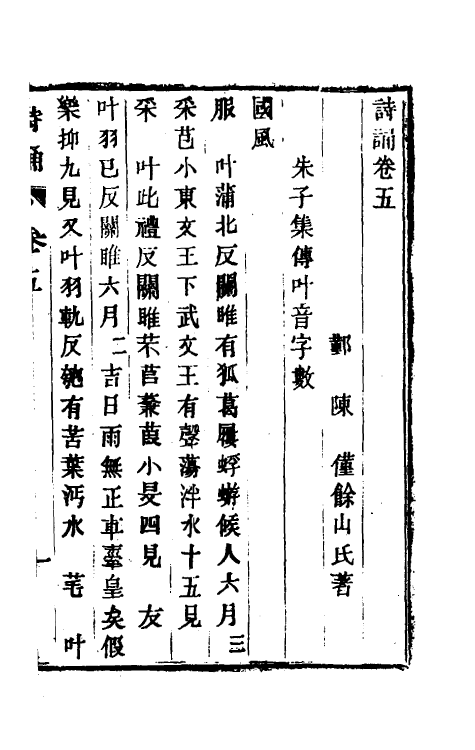 詩誦卷五
鄞 陳 僅餘山氏著
朱子集傳叶音字數
國風
服 叶蒲北反關雎有狐葛屨蜉蝣候人六月三
采芑小東文王下武文王有聲蕩泮水十五見
采 叶此禮反關雎芣苢蒹葭小旻四見 友
叶羽已反關雎六月二吉日雨無正車舝皇矣假
樂抑九見又叶羽軌反匏有苦葉沔水 芼 叶
詩誦 卷五 一